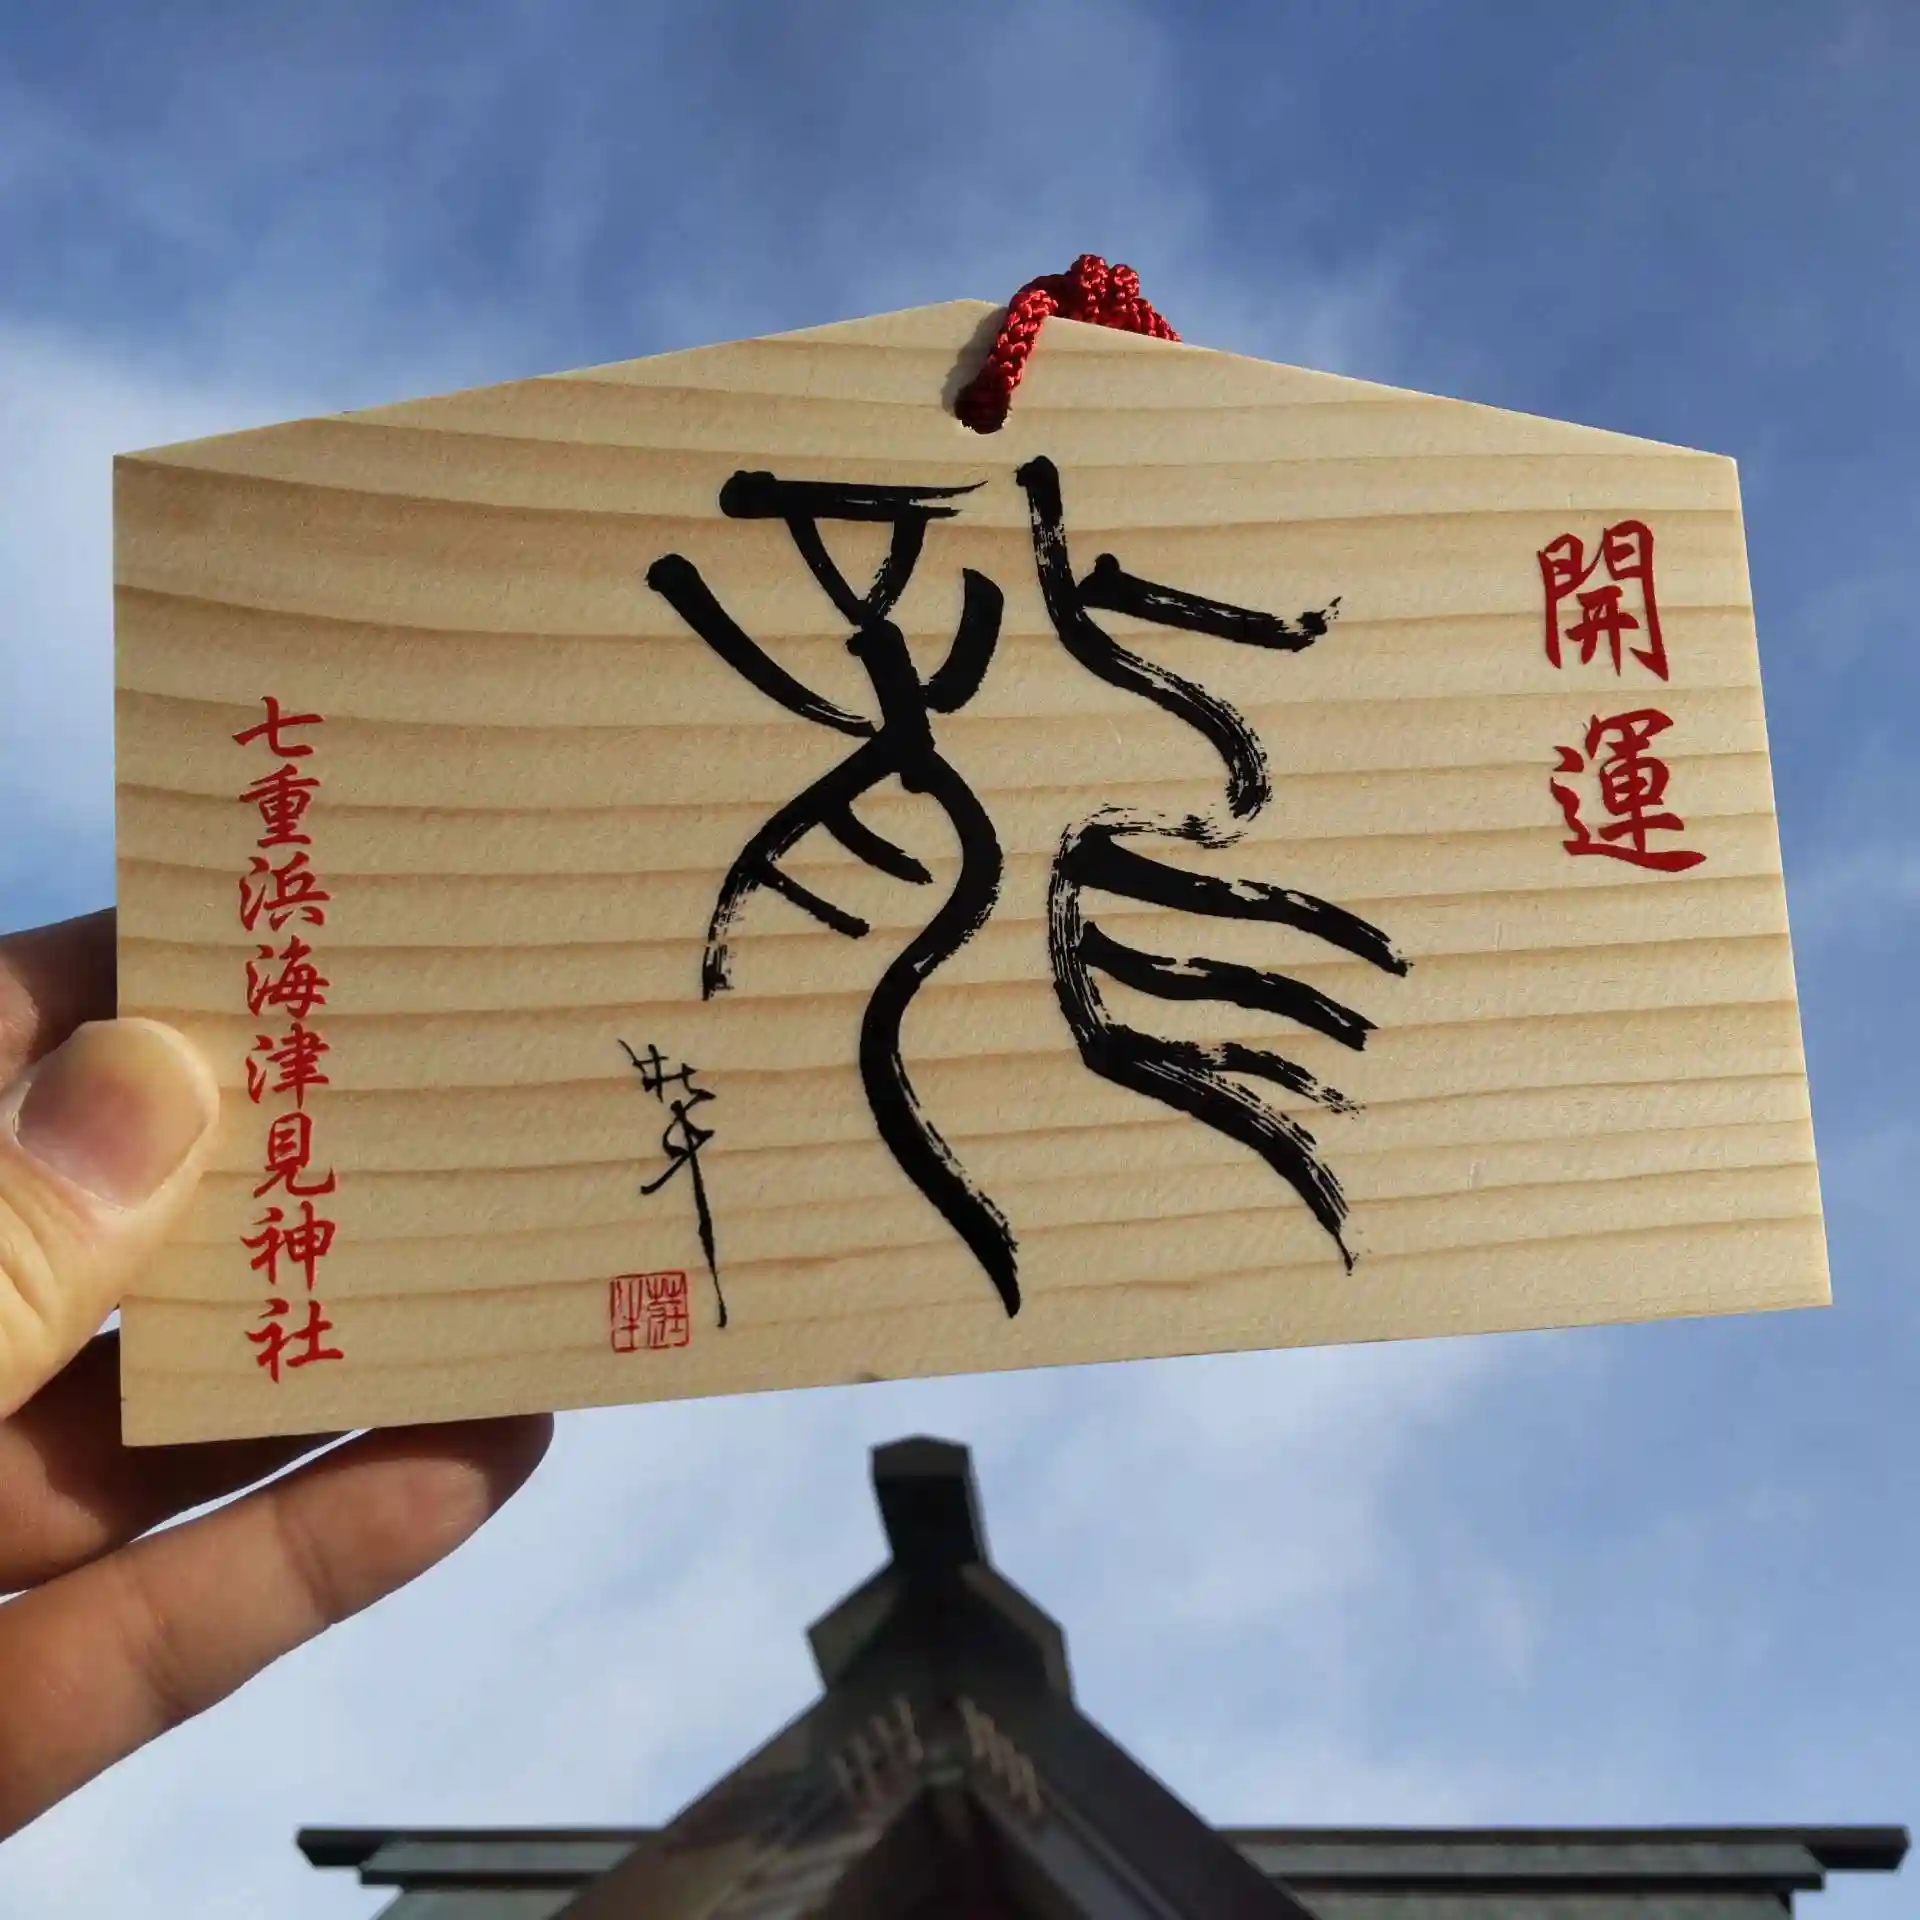 開運
龍
七重浜海津見神社